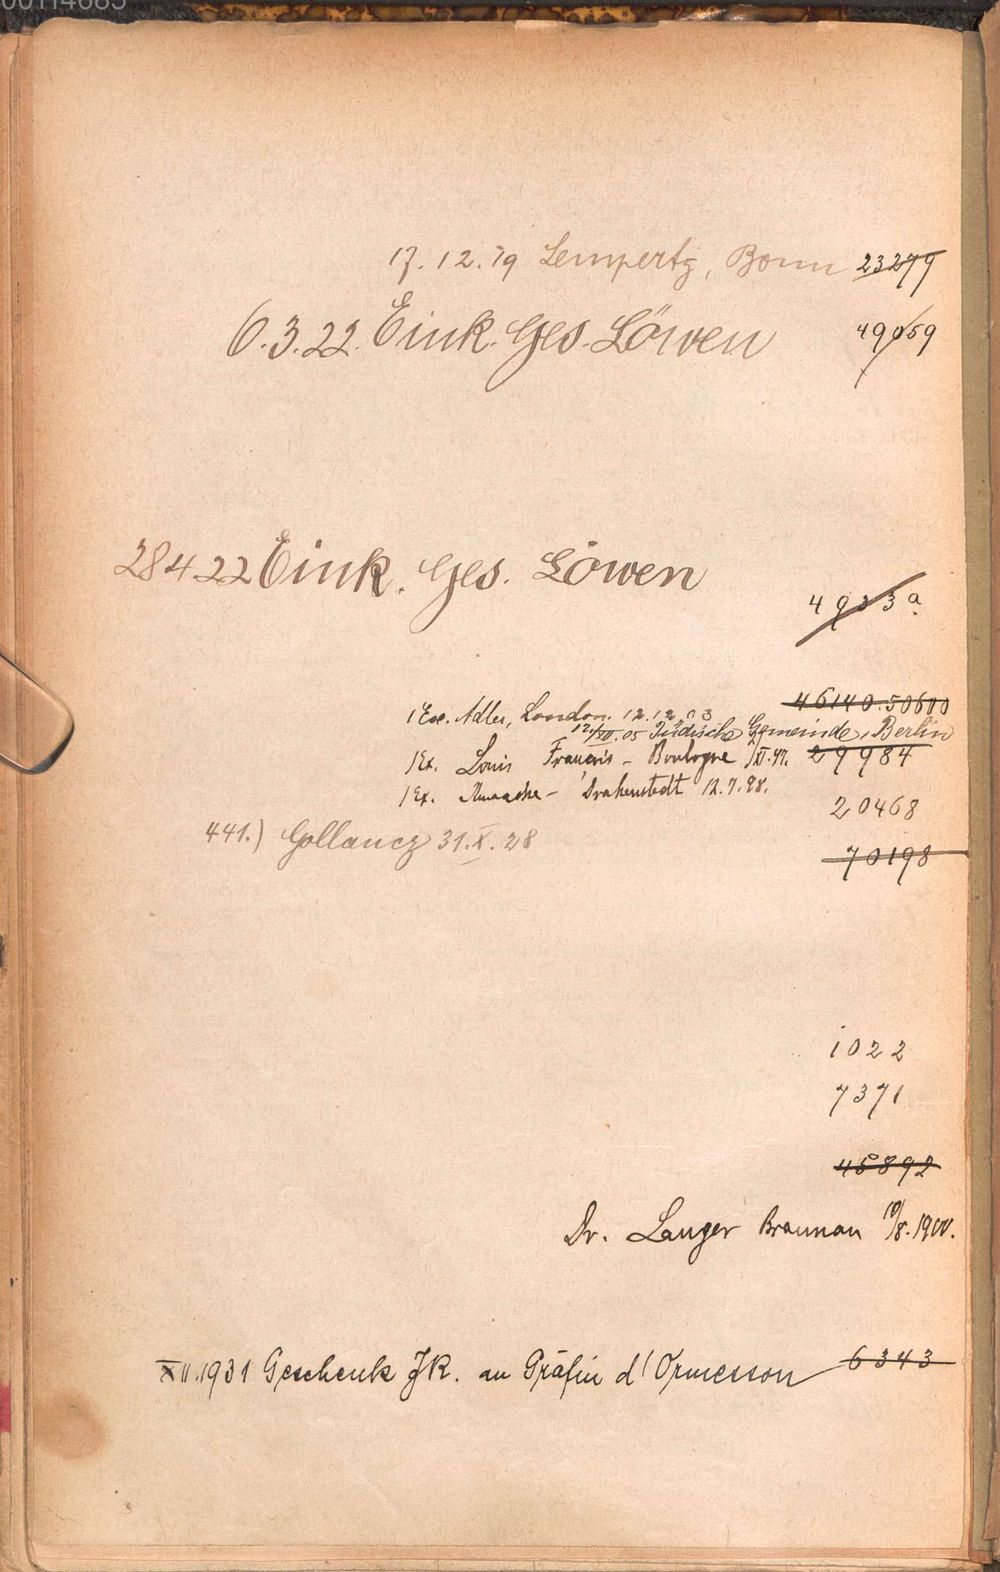 00114685
17.12.19 Lempertz, Bonn 23279
6.3.22. Eink. Ges. Löwen 49059
28 4 22 Eink. Ges. Löwen
49 3 a
46140.50600
1 Ex. Adler, London. 12.12.03
12/XII.05 Jüdische Gemeinde, Berlin
1 Ex. Louis - Boulogne 29984
1 Ex. Drakenstedt 12.7.98.
20468
441.) Gollancz 31.X.28
70198
1022
7371
45892
Dr. Langer Braunau 10/8.1900.
XII.1931 Geschenk JR. an Gräfin d'Ormesson 6343